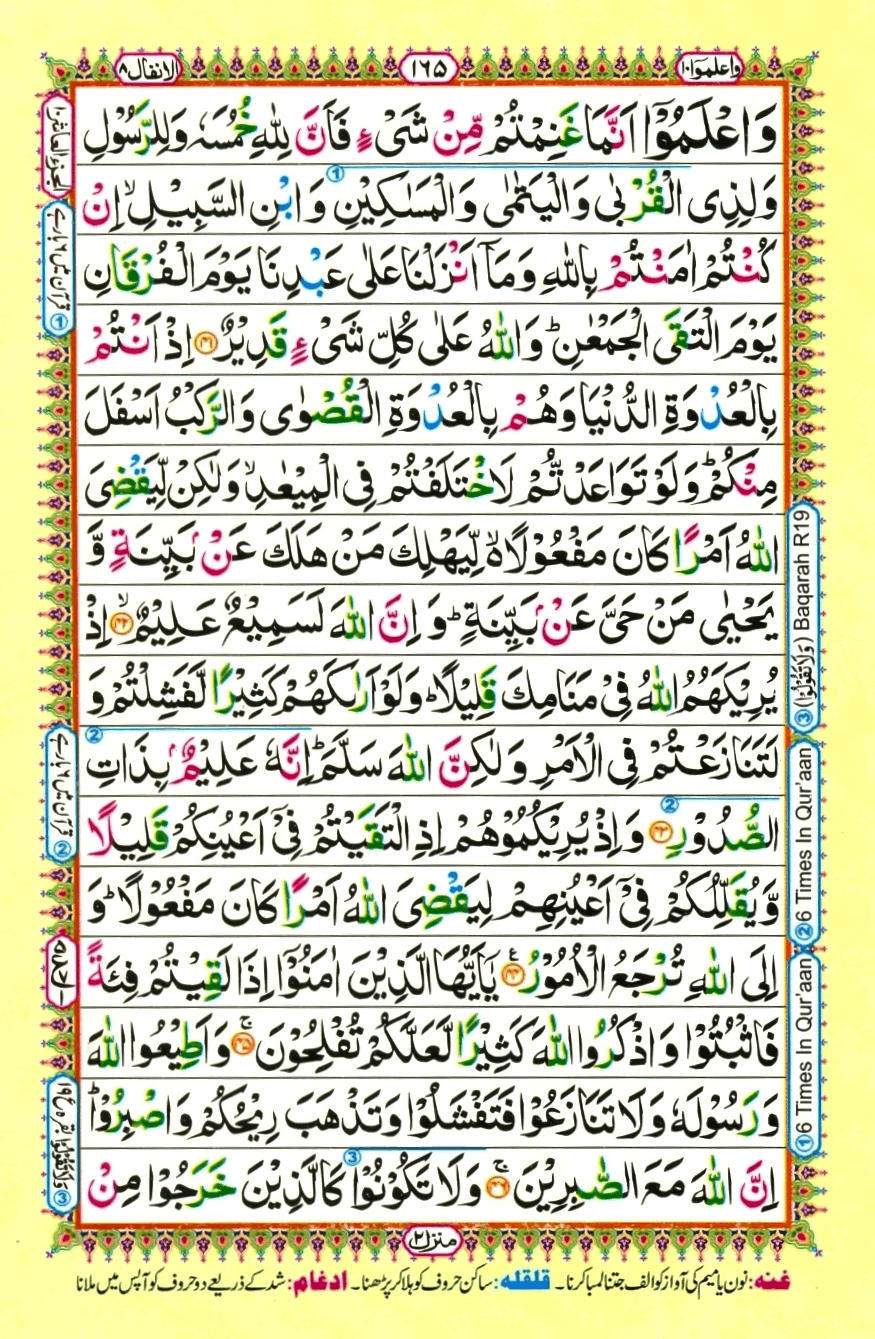 واعلموٓا١٠
١٦٥
الانفال٨
وَاعْلَمُوْۤا اَنَّمَا غَنِمْتُمْ مِّنْ شَیْءٍ فَاَنَّ لِلّٰهِ خُمُسَهٗ وَلِلرَّسُوْلِ
وَلِذِی الْقُرْبٰی وَالْیَتٰمٰی وَالْمَسٰكِیْنِ وَابْنِ السَّبِیْلِ ۙ اِنْ
كُنْتُمْ اٰمَنْتُمْ بِاللّٰهِ وَمَاۤ اَنْزَلْنَا عَلٰی عَبْدِنَا یَوْمَ الْفُرْقَانِ
یَوْمَ الْتَقَی الْجَمْعٰنِ ؕ وَاللّٰهُ عَلٰی كُلِّ شَیْءٍ قَدِیْرٌ ﴿۴۱﴾ اِذْ اَنْتُمْ
بِالْعُدْوَةِ الدُّنْیَا وَهُمْ بِالْعُدْوَةِ الْقُصْوٰی وَالرَّكْبُ اَسْفَلَ
مِنْكُمْ ؕ وَلَوْ تَوَاعَدْتُّمْ لَاخْتَلَفْتُمْ فِی الْمِیْعٰدِ ۙ وَلٰكِنْ لِّیَقْضِیَ
اللّٰهُ اَمْرًا كَانَ مَفْعُوْلًا ۬ۙ لِّیَهْلِكَ مَنْ هَلَكَ عَنْۢ بَیِّنَةٍ وَّ
یَحْیٰی مَنْ حَیَّ عَنْۢ بَیِّنَةٍ ؕ وَ اِنَّ اللّٰهَ لَسَمِیْعٌ عَلِیْمٌ ﴿۴۲﴾ۙ اِذْ
یُرِیْكَهُمُ اللّٰهُ فِیْ مَنَامِكَ قَلِیْلًا ؕ وَلَوْ اَرٰىكَهُمْ كَثِیْرًا لَّفَشِلْتُمْ وَ
لَتَنَازَعْتُمْ فِی الْاَمْرِ وَلٰكِنَّ اللّٰهَ سَلَّمَ ؕ اِنَّهٗ عَلِیْمٌۢ بِذَاتِ
الصُّدُوْرِ ﴿۴۳﴾ وَاِذْ یُرِیْكُمُوْهُمْ اِذِ الْتَقَیْتُمْ فِیْۤ اَعْیُنِكُمْ قَلِیْلًا
وَّیُقَلِّلُكُمْ فِیْۤ اَعْیُنِهِمْ لِیَقْضِیَ اللّٰهُ اَمْرًا كَانَ مَفْعُوْلًا ؕ وَ
اِلَی اللّٰهِ تُرْجَعُ الْاُمُوْرُ ﴿۴۴﴾ یٰۤاَیُّهَا الَّذِیْنَ اٰمَنُوْۤا اِذَا لَقِیْتُمْ فِئَةً
فَاثْبُتُوْا وَاذْكُرُوا اللّٰهَ كَثِیْرًا لَّعَلَّكُمْ تُفْلِحُوْنَ ﴿۴۵﴾ۚ وَاَطِیْعُوا اللّٰهَ
وَرَسُوْلَهٗ وَلَا تَنَازَعُوْا فَتَفْشَلُوْا وَتَذْهَبَ رِیْحُكُمْ وَاصْبِرُوْا ؕ
اِنَّ اللّٰهَ مَعَ الصّٰبِرِیْنَ ﴿۴۶﴾ۚ وَلَا تَكُوْنُوْا كَالَّذِیْنَ خَرَجُوْا مِنْ
منزل٢
غنه: نون یا میم کی آواز کو الف جتنا لمبا کرنا۔ قلقله: ساکن حروف کو ہلا کر پڑھنا۔ ادغام: شد کے ذریعے دو حروف کو آپس میں ملانا
③ (وَلَا تَقُوْلُوْا) Baqarah R19
② 6 Times In Qur'aan
① 6 Times In Qur'aan
الجزء العاشر١٠
قرآن میں ٦ بار ہے ①
قرآن میں ٦ بار ہے ②